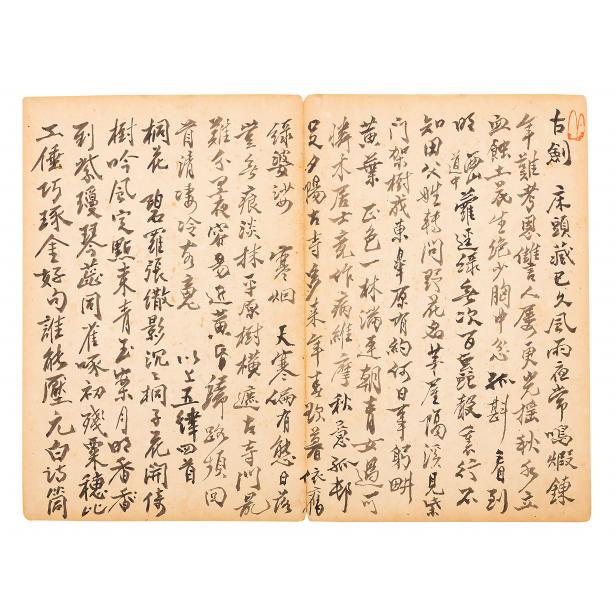 古劍 床頭藏已久風雨夜常鳴煅鍊
年難考恩讎人屢更光搖秋水立
血蝕土花生絕少胸中忿孤斟看到
明 海山道中 蘿逕綠無次百行不
知田父姓轉問野花名茅屋隔溪見柴
門架樹成東皋原有約何日事躬畊
黃葉 正色一林滿連朝青女過可
憐木居士竟作病維摩秋意孤邨
足夕陽古寺多來年春欲暮依舊
綠婆娑 寒烟 天寒有態日落
無痕淡抹平原樹橫遮古寺門
難容易近黃昏歸路頻回
首清凄冷 以上五律四首
桐花 碧羅張繖影沉桐子花開倚
樹吟風定點來青玉案月明香
到紫瓊琴蕊同雀啄初殘粟穗比
工倕巧琢金好句誰能壓元白詩筒